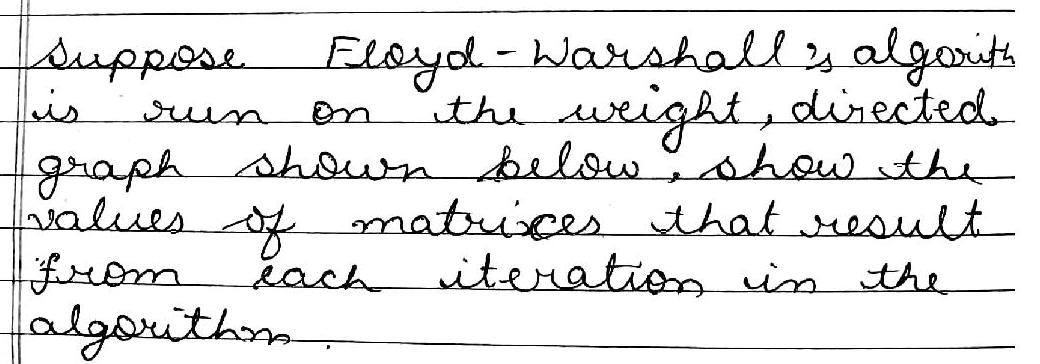 Suppose Floyd-Warshall's algorith
is run on the weight, directed
graph shown below, show the
values of matrixces that result
from each iteration in the
algorithm.